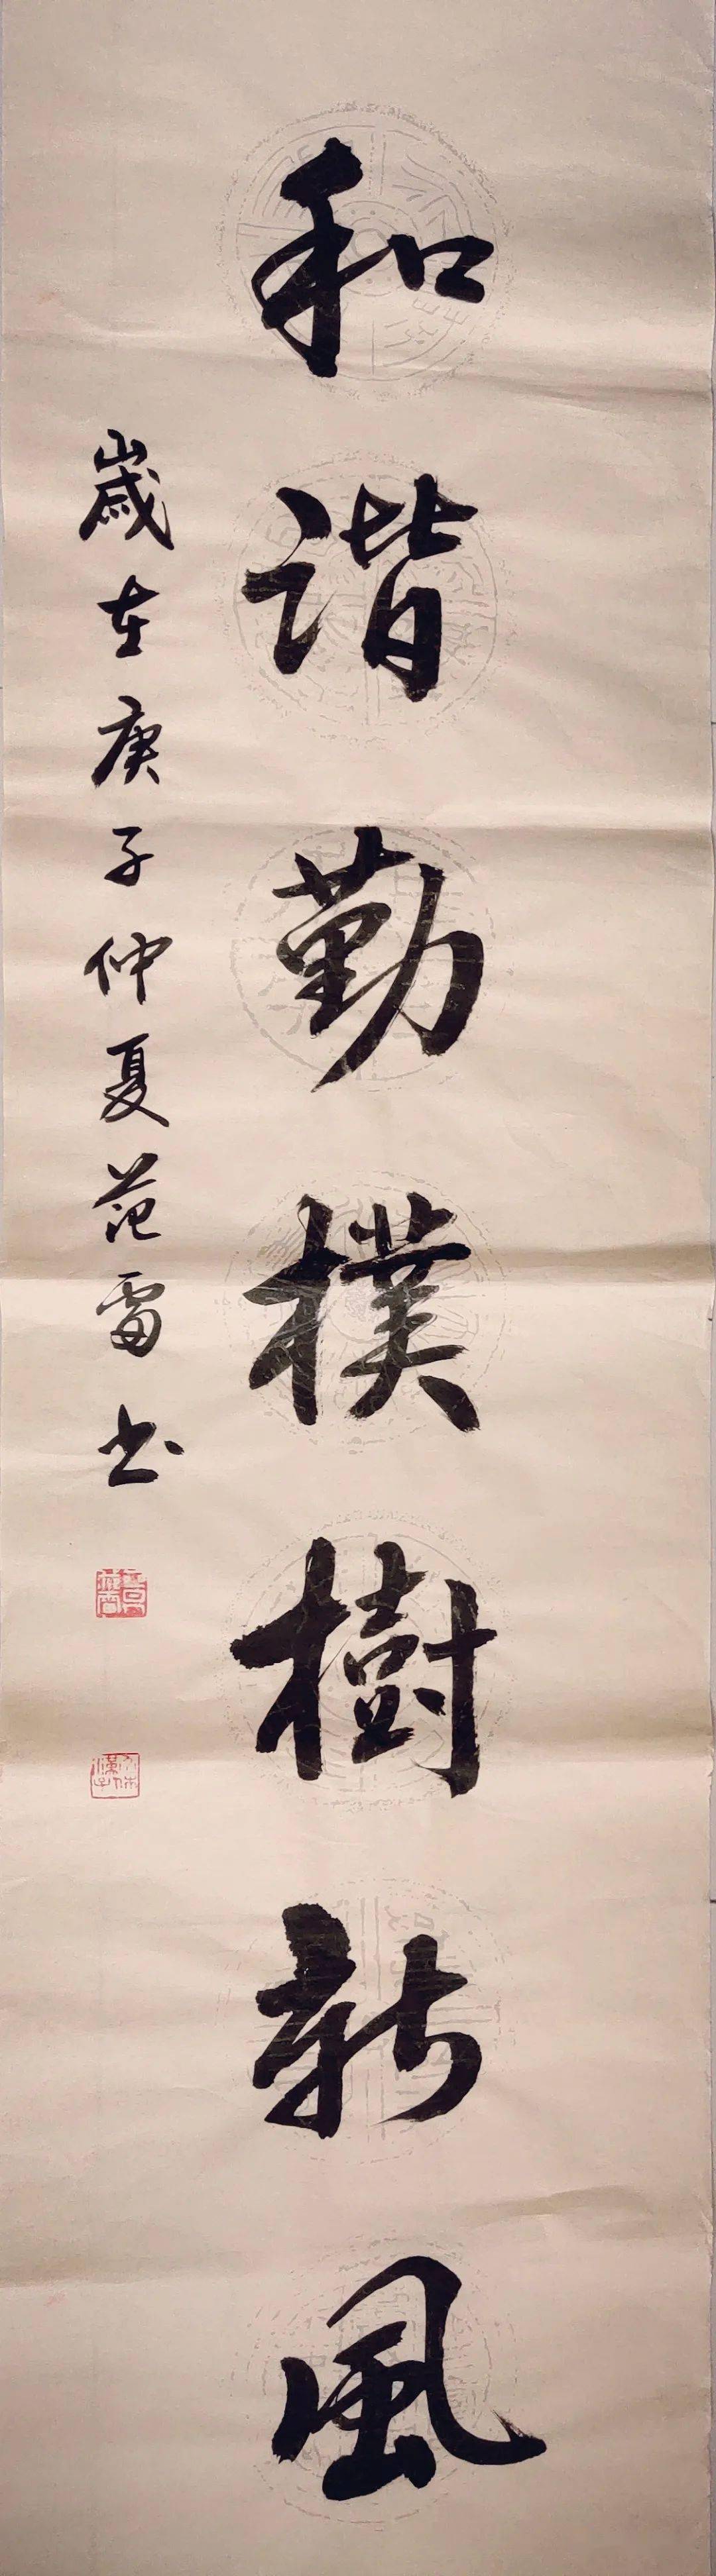 和谐勤樸樹新風
歲在庚子仲夏范雷书